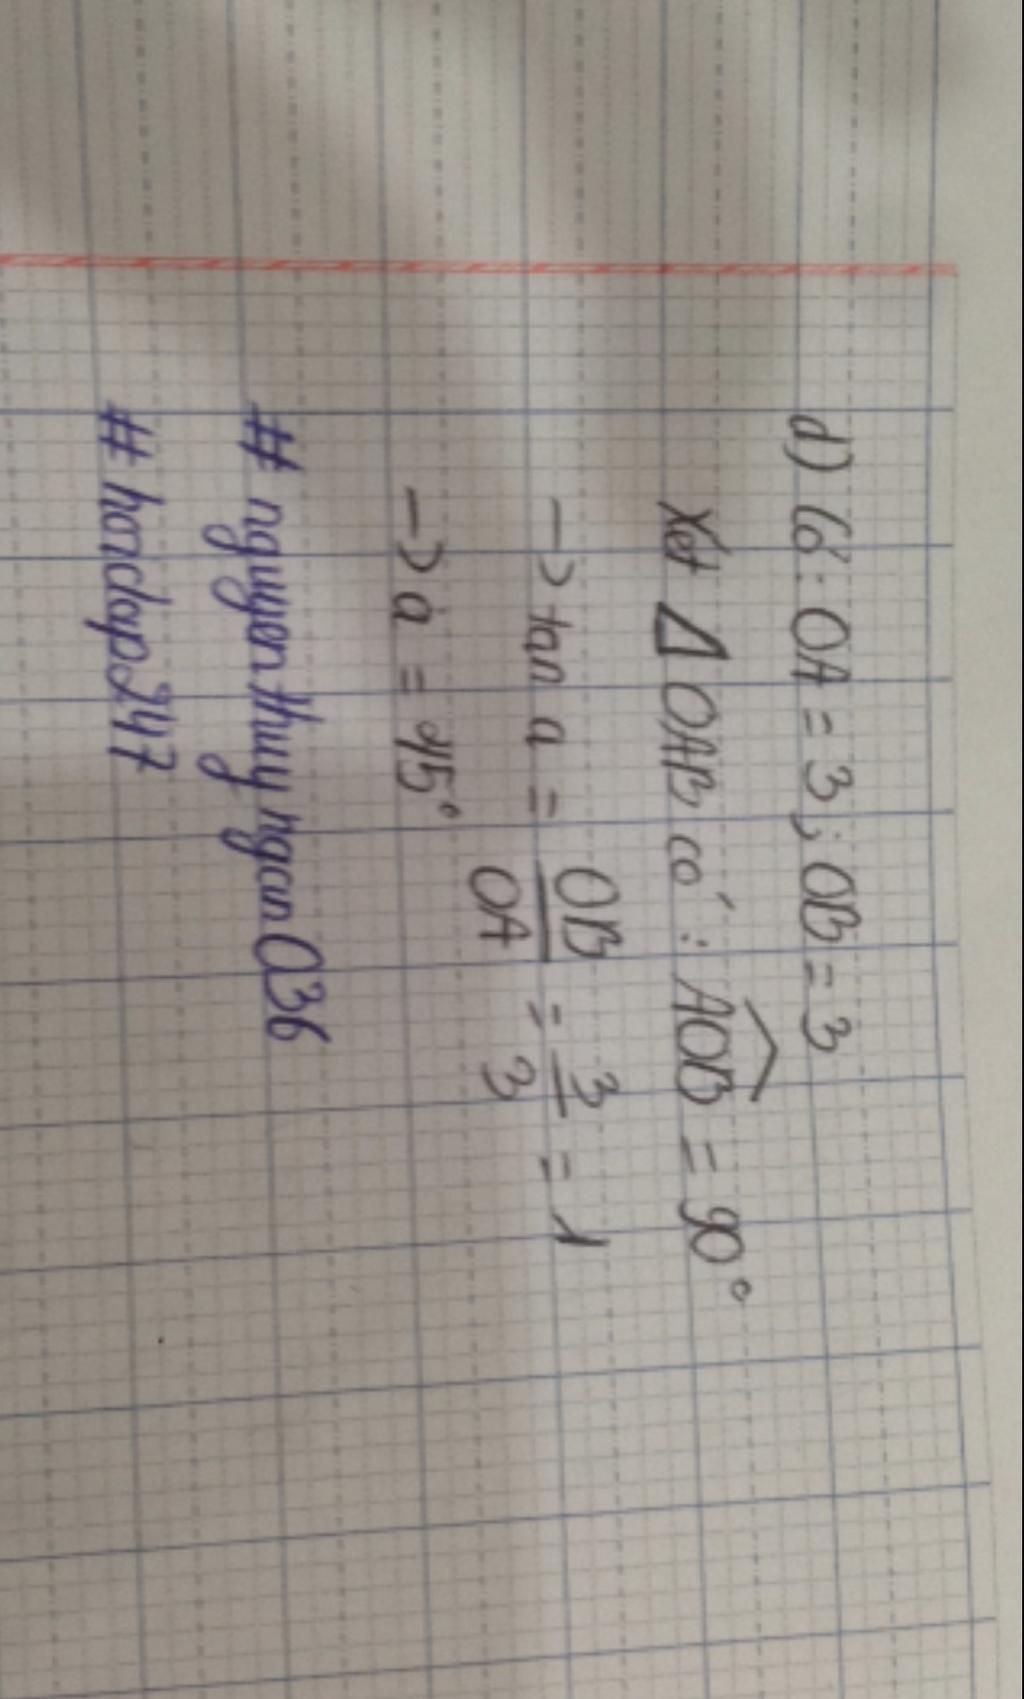 d) Có: OA = 3; OB = 3
Xét Δ OAB có: \widehat{AOB} = 90°
-> tan a = \frac{OB}{OA} = \frac{3}{3} = 1
-> a = 45°
# nguyenthuyngan036
# hoidap247